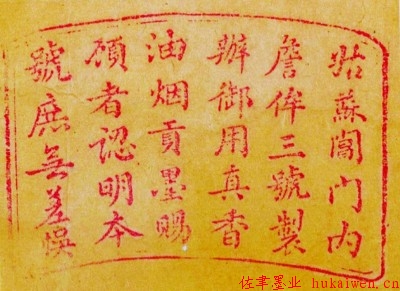 姑蘇閶门内
詹侔三號製
辦御用真香
油烟貢墨賜
顧者認明本
號庶無差悞
佐聿墨业 hukaiwen.cn